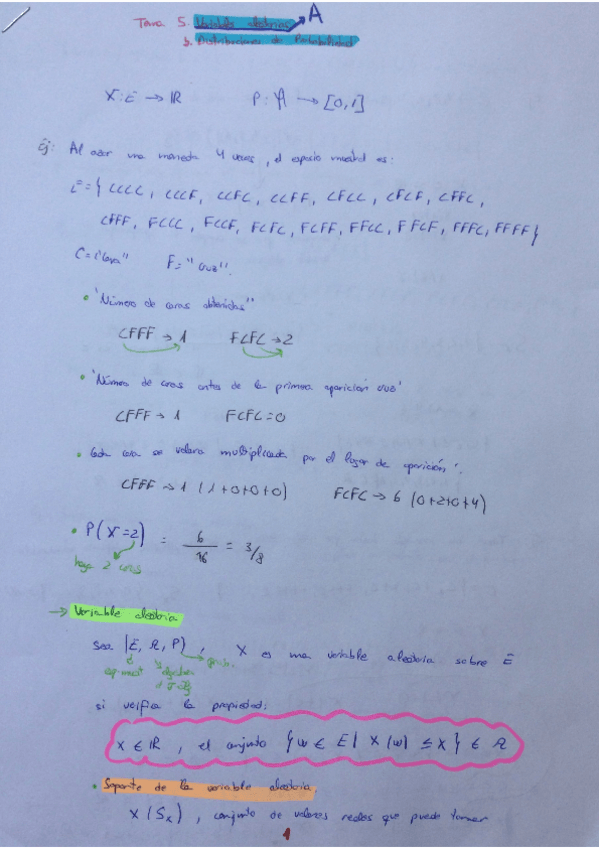 Tema 5. Variables aleatorias A
y Distribuciones de Probabilidad
X: E → IR P: A → [0,1]
Ej: Al azar una moneda 4 veces, el espacio muestral es:
E = { CCCC, CCCF, CCFC, CCFF, CFCC, CFCF, CFFC,
CFFF, FCCC, FCCF, FCFC, FCFF, FFCC, FFCF, FFFC, FFFF}
C = "Cara" F = "cruz".
• "Número de caras obtenidas"
CFFF → 1 FCFC → 2
• "Número de caras antes de la primera aparición cruz"
CFFF → 1 FCFC = 0
• Cada cara se valora multiplicada por el lugar de aparición".
CFFF → 1 (1+0+0+0) FCFC → 6 (0+2+0+4)
• P(X=2) = 6/16 = 3/8
haya 2 caras
→ Variable aleatoria
sea (E, A, P), X es una variable aleatoria sobre E
esp. muest
si verifica la propiedad:
X ∈ IR, el conjunto {w ∈ E | X(w) ≤ X} ∈ A
• Soporte de la variable aleatoria
X (Sx), conjunto de valores reales que puede tomar
1